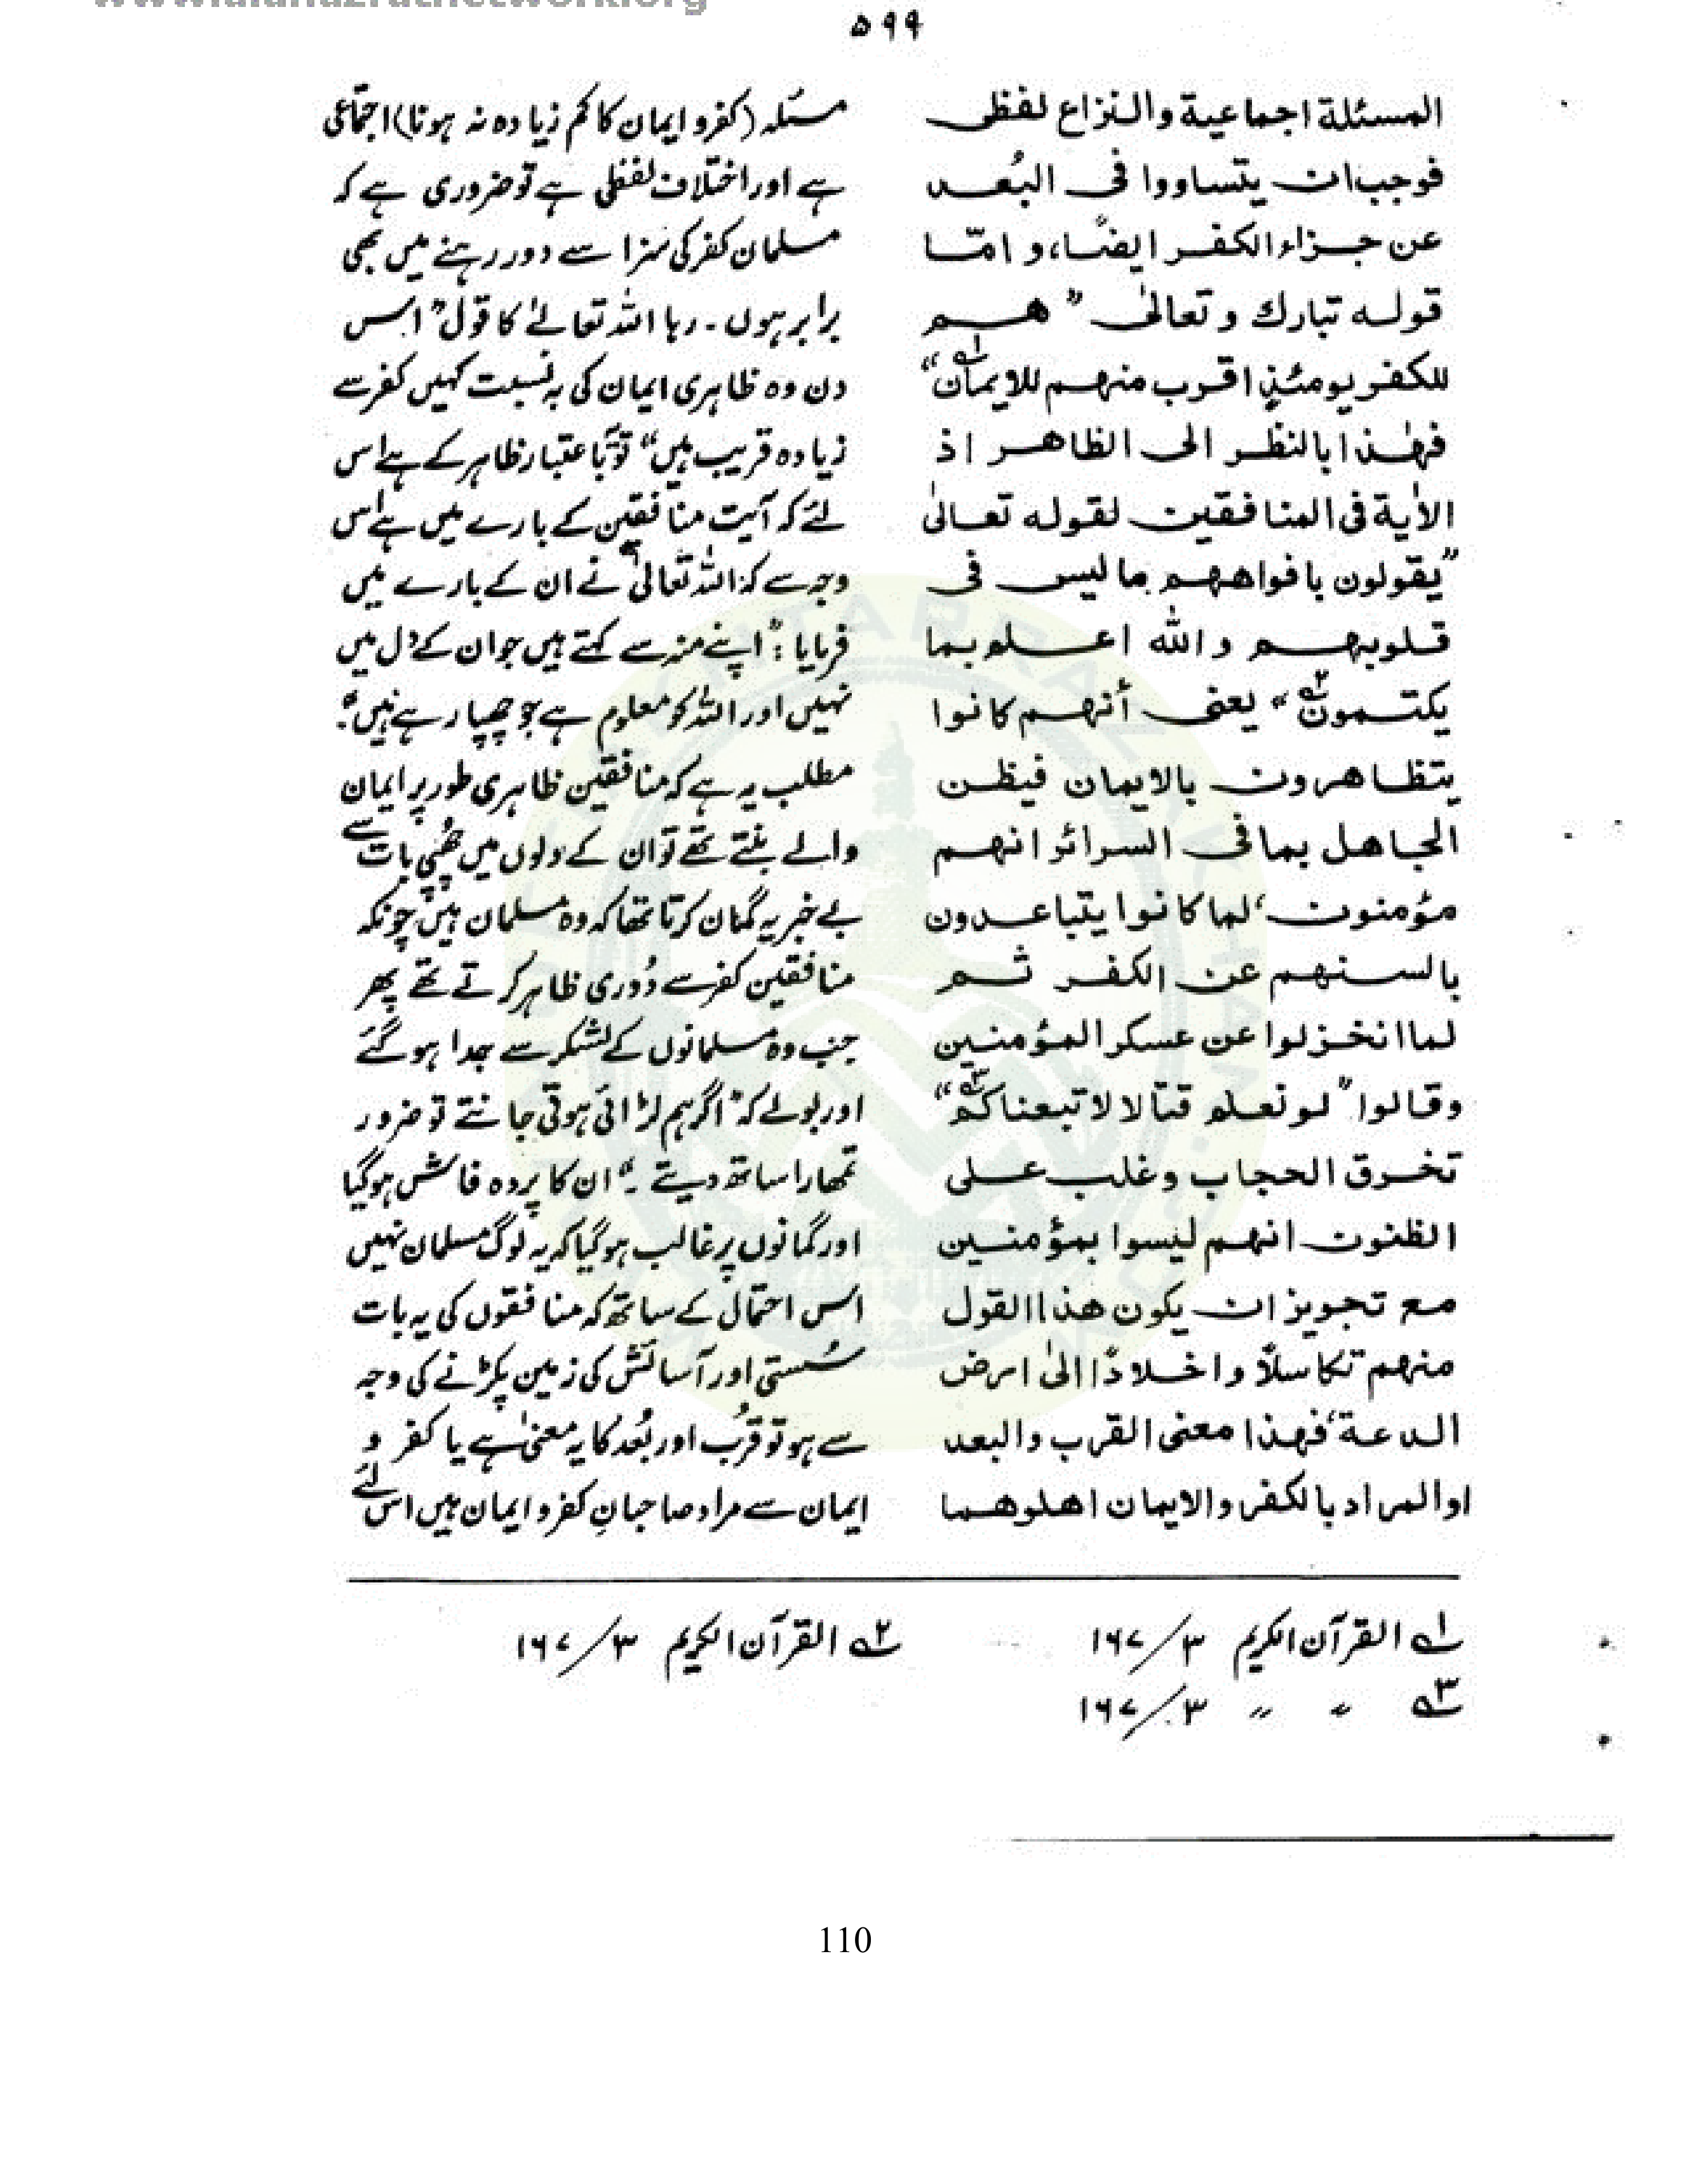 ۵۹۹
المسئلة اجماعية والنزاع لفظی
فوجب ان یتساووا فی البُعد
عن جزاء الکفر ایضًا، و امّا
قوله تبارك و تعالیٰ " هم
للکفر یومئذٍ اقرب منهم للایمان۱؎"
فهٰذا بالنظر الی الظاهر اذ
الاٰیة فی المنافقین لقوله تعالیٰ
"یقولون بافواههم ما لیس فی
قلوبهم و الله اعلم بما
یکتمون۲؎" یعنی أنهم کانوا
یتظاهرون بالایمان فیظن
الجاهل بما فی السرائر انهم
مؤمنون، لما کانوا یتباعدون
بالسنهم عن الکفر ثم
لما انخزلوا عن عسکر المؤمنین
وقالوا "لو نعلم قتالا لا تبعناکم۳؎"
تخرق الحجاب وغلب علی
الظنون انهم لیسوا بمؤمنین
مع تجویز ان یکون هذا القول
منهم تکاسلًا و اخلادًا الیٰ ارض
الدعة، فهذا معنی القرب والبعد
او المراد بالکفر والایمان اهلوهما
مسئلہ (کفر و ایمان کا کم زیادہ نہ ہونا) اجماعی
ہے اور اختلاف لفظی ہے تو ضروری ہے کہ
مسلمان کفر کی سزا سے دور رہنے میں بھی
برابر ہوں۔ رہا اللہ تعالےٰ کا قول "اس
دن وہ ظاہری ایمان کی بہ نسبت کہیں کفر سے
زیادہ قریب ہیں" تو یہ باعتبار ظاہر کے ہے اس
لئے کہ آیت منافقین کے بارے میں ہے اس
وجہ سے کہ اللہ تعالیٰ نے ان کے بارے میں
فرمایا: "اپنے منہ سے کہتے ہیں جو ان کے دل میں
نہیں اور اللہ کو معلوم ہے جو چھپا رہے ہیں"۔
مطلب یہ ہے کہ منافقین ظاہری طور پر ایمان
والے بنتے تھے تو ان کے دلوں میں چھپی بات سے
بے خبر یہ گمان کرتا تھا کہ وہ مسلمان ہیں چونکہ
منافقین کفر سے دُوری ظاہر کرتے تھے پھر
جب وہ مسلمانوں کے لشکر سے جدا ہو گئے
اور بولے کہ "اگر ہم لڑائی ہوتی جانتے تو ضرور
تمھارا ساتھ دیتے۔" ان کا پردہ فاش ہو گیا
اور گمانوں پر غالب ہو گیا کہ یہ لوگ مسلمان نہیں
اس احتمال کے ساتھ کہ منافقوں کی یہ بات
سُستی اور آسائش کی زمین پکڑنے کی وجہ
سے ہو تو قرُب اور بُعد کا یہ معنیٰ ہے یا کفر و
ایمان سے مراد صاحبانِ کفر و ایمان ہیں اس لئے
۱؎ القرآن الکریم ۳/۱۶۷
۲؎ القرآن الکریم ۳/۱۶۷
۳؎ " " ۳/۱۶۷
110